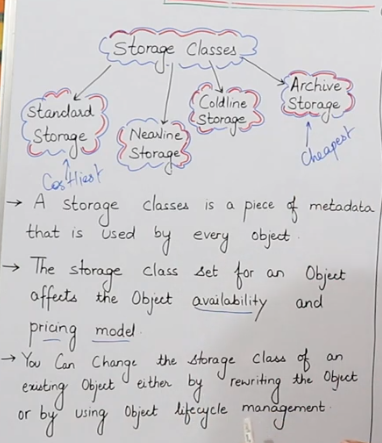 Storage Classes
Standard
Storage
Nearline
Storage
Coldline
Storage
Archive
Storage
Costliest
Cheapest
→ A storage classes is a piece of metadata
that is used by every object.
→ The storage class set for an Object
affects the Object availability and
pricing model.
→ You Can Change the storage class of an
existing Object either by rewriting the Object
or by using Object lifecycle management.